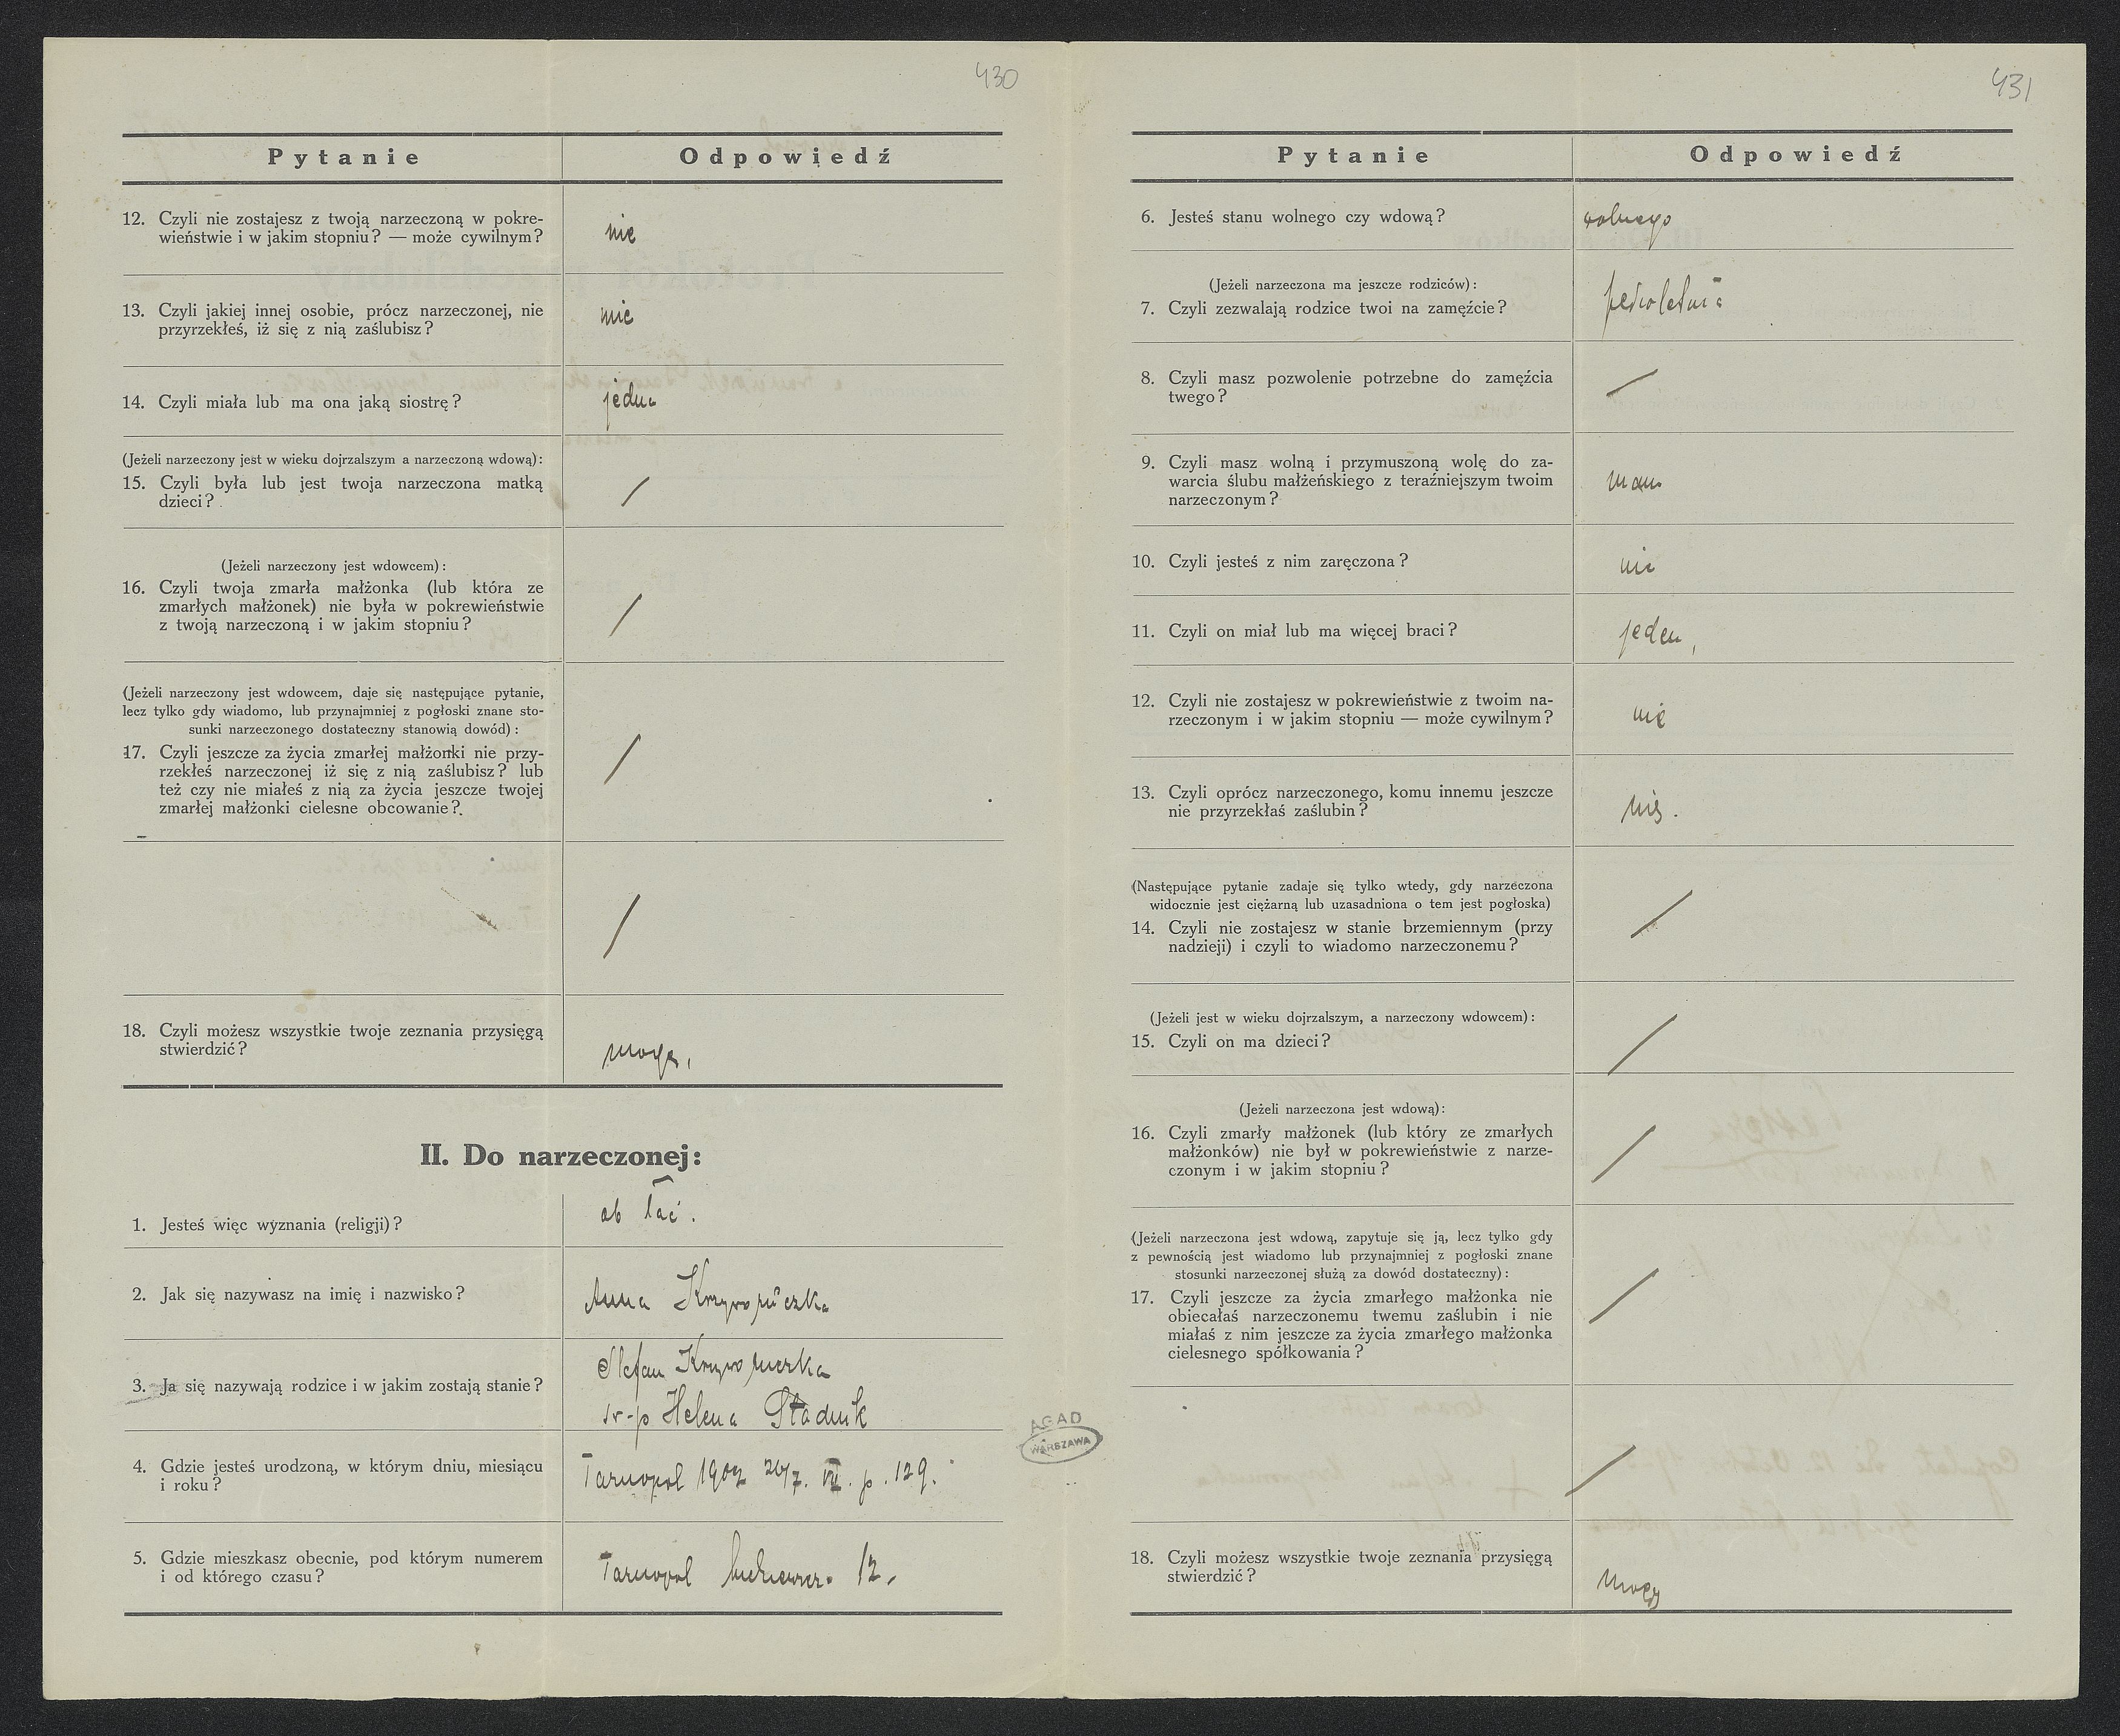 430
Pytanie Odpowiedź
12. Czyli nie zostajesz z twoją narzeczoną w pokre-
wieństwie i w jakim stopniu? — może cywilnym?
nie
13. Czyli jakiej innej osobie, prócz narzeczonej, nie
przyrzekłeś, iż się z nią zaślubisz?
nie
14. Czyli miała lub ma ona jaką siostrę?
jedna
(Jeżeli narzeczony jest w wieku dojrzalszym a narzeczoną wdową):
15. Czyli była lub jest twoja narzeczona matką
dzieci?
/
(Jeżeli narzeczony jest wdowcem):
16. Czyli twoja zmarła małżonka (lub która ze
zmarłych małżonek) nie była w pokrewieństwie
z twoją narzeczoną i w jakim stopniu?
/
(Jeżeli narzeczony jest wdowcem, daje się następujące pytanie,
lecz tylko gdy wiadomo, lub przynajmniej z pogłoski znane sto-
sunki narzeczonego dostateczny stanowią dowód):
17. Czyli jeszcze za życia zmarłej małżonki nie przy-
rzekłeś narzeczonej iż się z nią zaślubisz? lub
też czy nie miałeś z nią za życia jeszcze twojej
zmarłej małżonki cielesne obcowanie?
/
/
18. Czyli możesz wszystkie twoje zeznania przysięgą
stwierdzić?
mogę,
II. Do narzeczonej:
1. Jesteś więc wyznania (religji)?
ob łać.
2. Jak się nazywasz na imię i nazwisko?
Anna Krzywopuczka
3. Ja się nazywają rodzice i w jakim zostają stanie?
Stefan Krzywopuczka
śr-p Helena Stadnik
4. Gdzie jesteś urodzoną, w którym dniu, miesiącu
i roku?
Tarnopol 1902 26/7. VII. p. 129.
5. Gdzie mieszkasz obecnie, pod którym numerem
i od którego czasu?
Tarnopol 12.
AGAD
WARSZAWA
431
Pytanie Odpowiedź
6. Jesteś stanu wolnego czy wdową?
wolnego
(Jeżeli narzeczona ma jeszcze rodziców):
7. Czyli zezwalają rodzice twoi na zamęźcie?
pełnoletnia
8. Czyli masz pozwolenie potrzebne do zamęźcia
twego?
/
9. Czyli masz wolną i przymuszoną wolę do za-
warcia ślubu małżeńskiego z teraźniejszym twoim
narzeczonym?
mam
10. Czyli jesteś z nim zaręczona?
nie
11. Czyli on miał lub ma więcej braci?
jeden,
12. Czyli nie zostajesz w pokrewieństwie z twoim na-
rzeczonym i w jakim stopniu — może cywilnym?
nie
13. Czyli oprócz narzeczonego, komu innemu jeszcze
nie przyrzekłaś zaślubin?
nie.
(Następujące pytanie zadaje się tylko wtedy, gdy narzeczona
widocznie jest ciężarną lub uzasadniona o tem jest pogłoska)
14. Czyli nie zostajesz w stanie brzemiennym (przy
nadzieji) i czyli to wiadomo narzeczonemu?
/
(Jeżeli jest w wieku dojrzalszym, a narzeczony wdowcem):
15. Czyli on ma dzieci?
/
(Jeżeli narzeczona jest wdową):
16. Czyli zmarły małżonek (lub który ze zmarłych
małżonków) nie był w pokrewieństwie z narze-
czonym i w jakim stopniu?
/
(Jeżeli narzeczona jest wdową, zapytuje się ją, lecz tylko gdy
z pewnością jest wiadomo lub przynajmniej z pogłoski znane
stosunki narzeczonej służą za dowód dostateczny):
17. Czyli jeszcze za życia zmarłego małżonka nie
obiecałaś narzeczonemu twemu zaślubin i nie
miałaś z nim jeszcze za życia zmarłego małżonka
cielesnego spółkowania?
/
/
18. Czyli możesz wszystkie twoje zeznania przysięgą
stwierdzić?
mogę